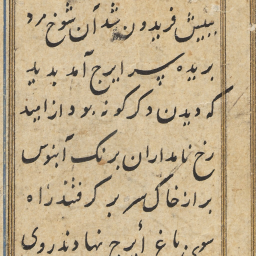 بپیش فریدون شد آن شوخ مرد
بریده سر ایرج آمد پدید
که دیدن دگرگونه بود از امید
رخ نامداران برنگ آبنوس
براز خاک سر برگرفتند راه
سوی باغ ایرج نهادند روی